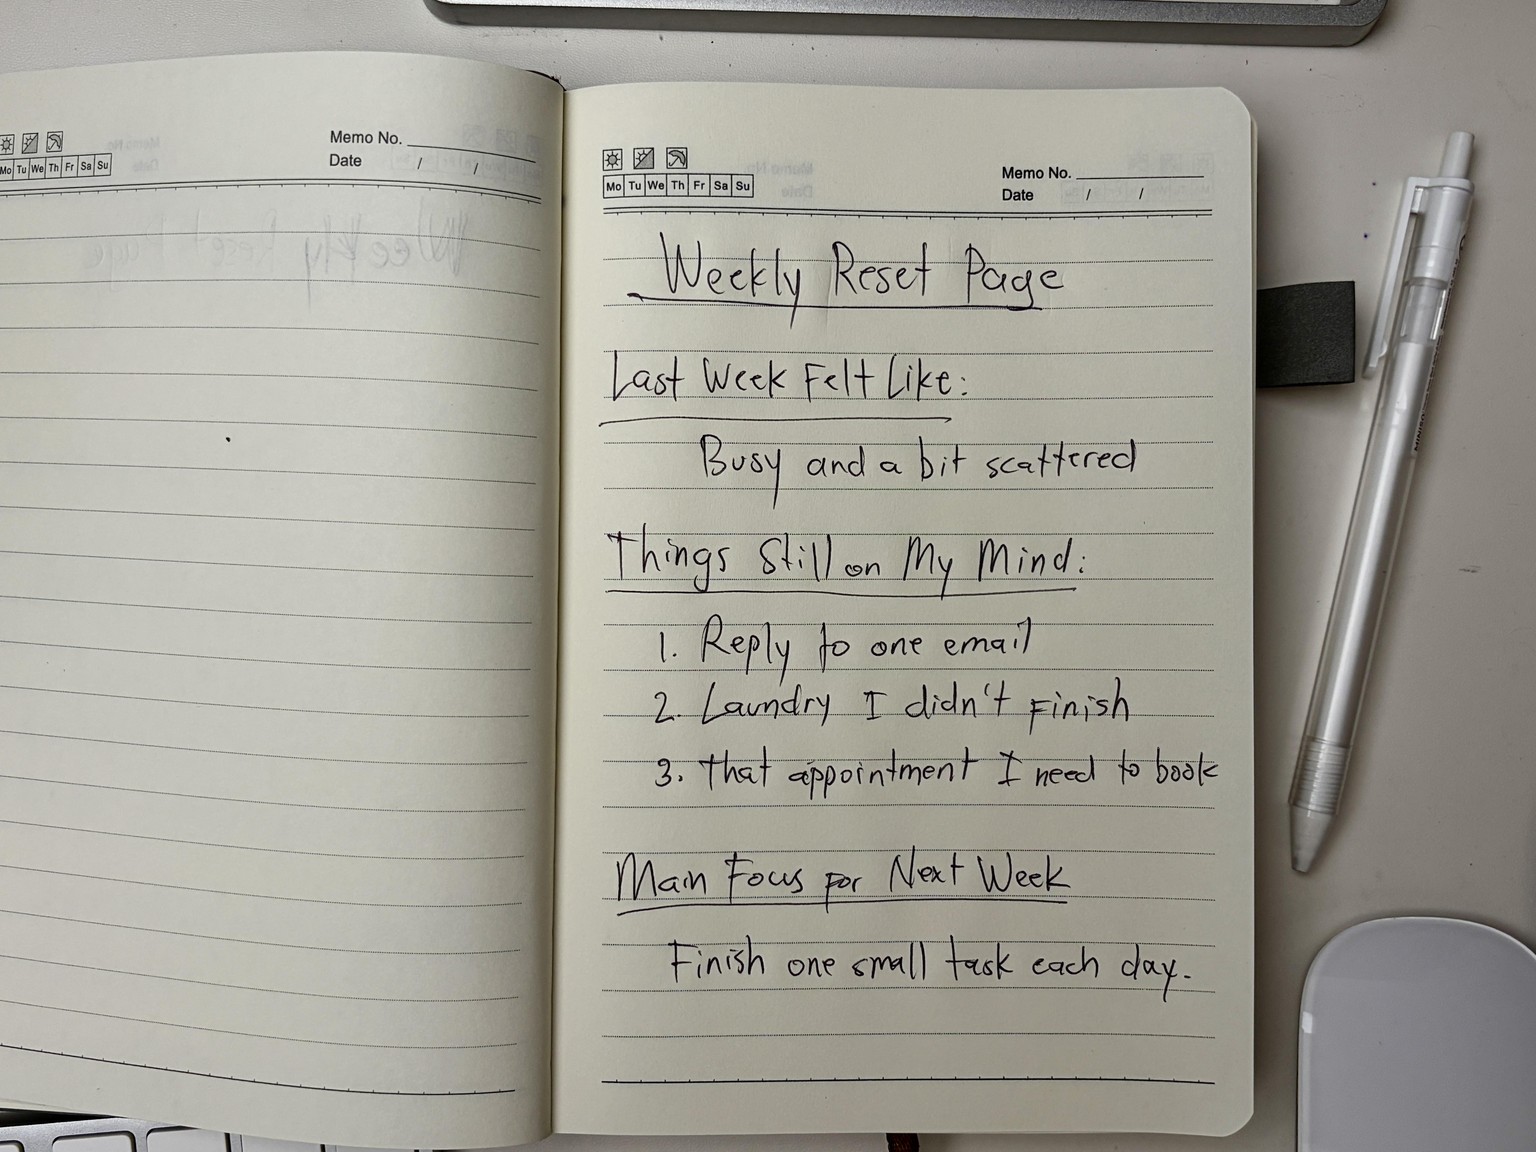 Mo Tu We Th Fr Sa Su
Memo No.
Date / /
Mo Tu We Th Fr Sa Su
Memo No.
Date / /
Weekly Reset Page
Last Week Felt Like:
Busy and a bit scattered
Things Still on My Mind:
1. Reply to one email
2. Laundry I didn't finish
3. That appointment I need to book
Main Focus for Next Week
Finish one small task each day.